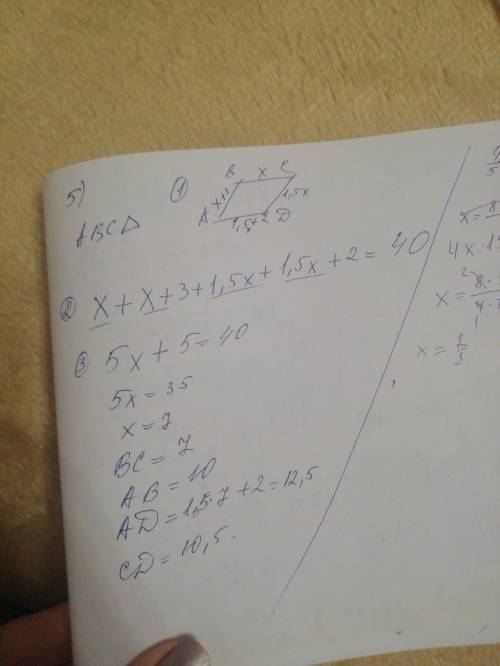 5)
ABCD
①
B x C
x+3 1,5x
A 1,5x+2 D
② x + x + 3 + 1,5x + 1,5x + 2 = 40
③ 5x + 5 = 40
5x = 35
x = 7
BC = 7
AB = 10
AD = 1,5·7 + 2 = 12,5
CD = 10,5.
4
5
x = 8
4x · 1
x =
x =